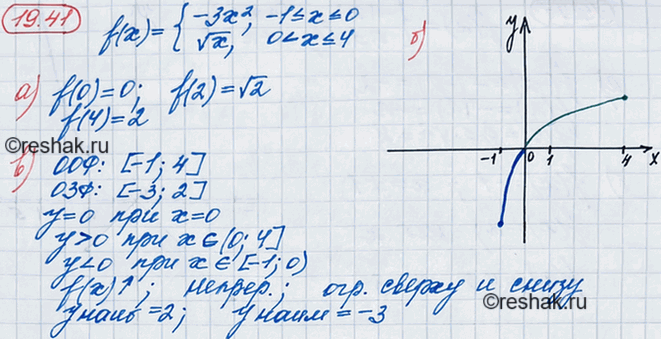 19.41 f(x) = { -3x², -1≤x≤0
√x, 0<x≤4
а) f(0)=0; f(2)=√2
f(4)=2
©reshak.ru
в) ООФ: [-1; 4]
ОЗФ: [-3; 2]
y=0 при x=0
y>0 при x∈(0; 4]
y<0 при x∈[-1; 0)
f(x)↑; непрер.; огр. сверху и снизу
y наиб =2; y наим = -3
б)
y
-1 0 1 4 x
©reshak.ru